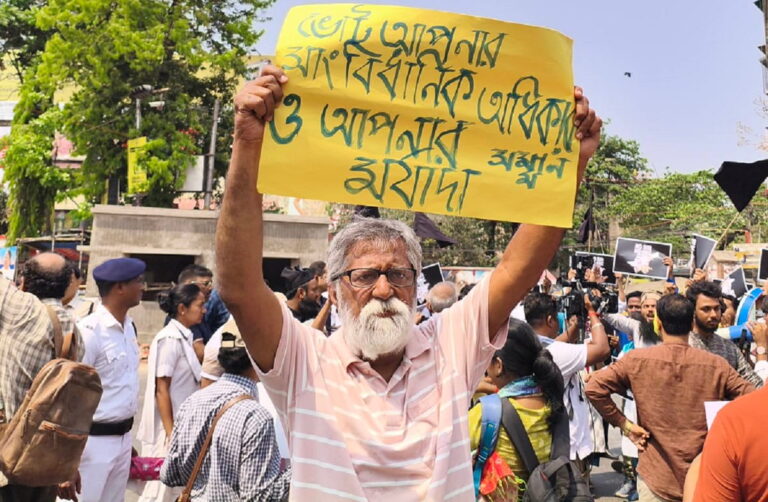 ভোট আপনার
সাংবিধানিক অধিকার
ও আপনার সম্মান
মর্যাদা